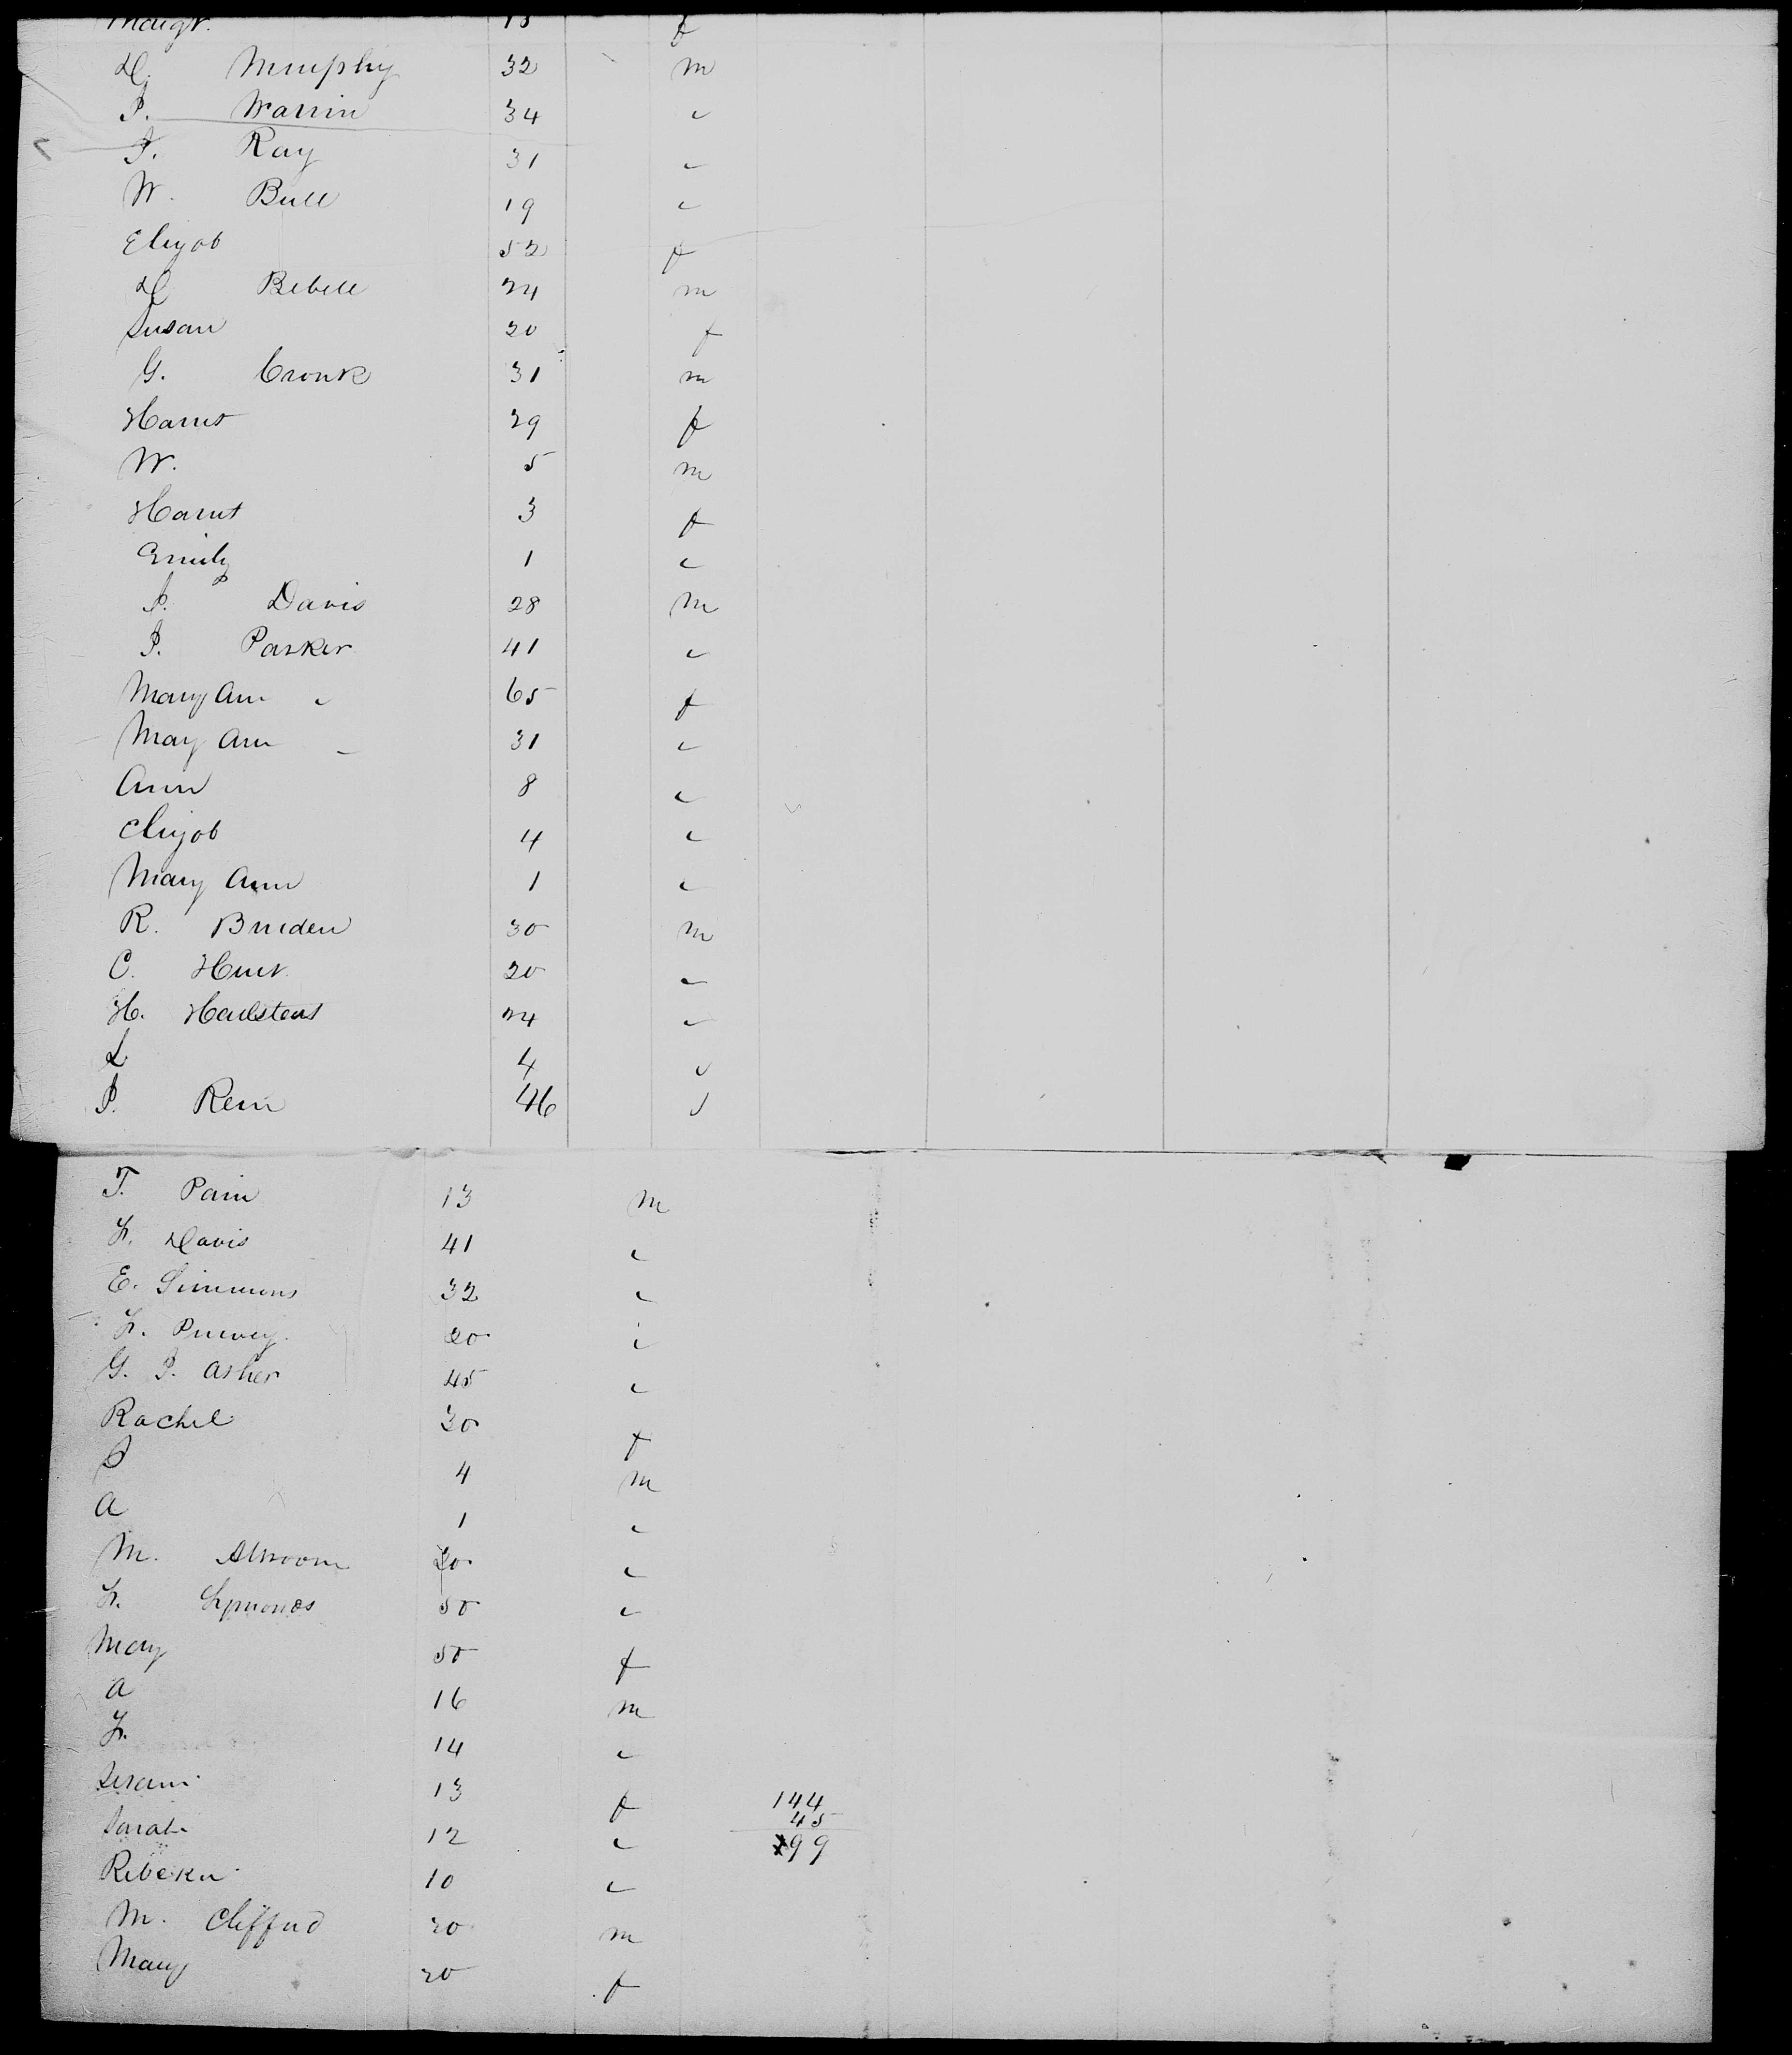 Margt. 13 f
D. Murphy 32 m
J. Warrin 34 "
J. Ray 31 "
W. Bull 19 "
Elizab 52 f
D Bibell 24 m
Susan 20 f
G. Cronk 31 m
Harriet 29 f
W. 5 m
Harriet 3 f
Emily 1 "
J. Davis 28 m
J. Parker 41 "
Mary Ann " 65 f
Mary Ann " 31 "
Ann 8 "
Elizab 4 "
Mary Ann 1 "
R. Burden 30 m
C. Hunt 20 "
H. 24 "
L 4 "
J. 46 "
T. Pain 13 m
H. Davis 41 "
E. Simmons 32 "
H. 20 "
G. J. Asher 45 "
Rachel 30 f
J 4 m
A 1 "
M. 20 "
H. 50 "
Mary 50 f
A 16 m
H. 14 "
Susan 13 f 144
45
Sarah 12 " 99
Rebeka 10 "
M. Clifford 20 m
Mary 20 f